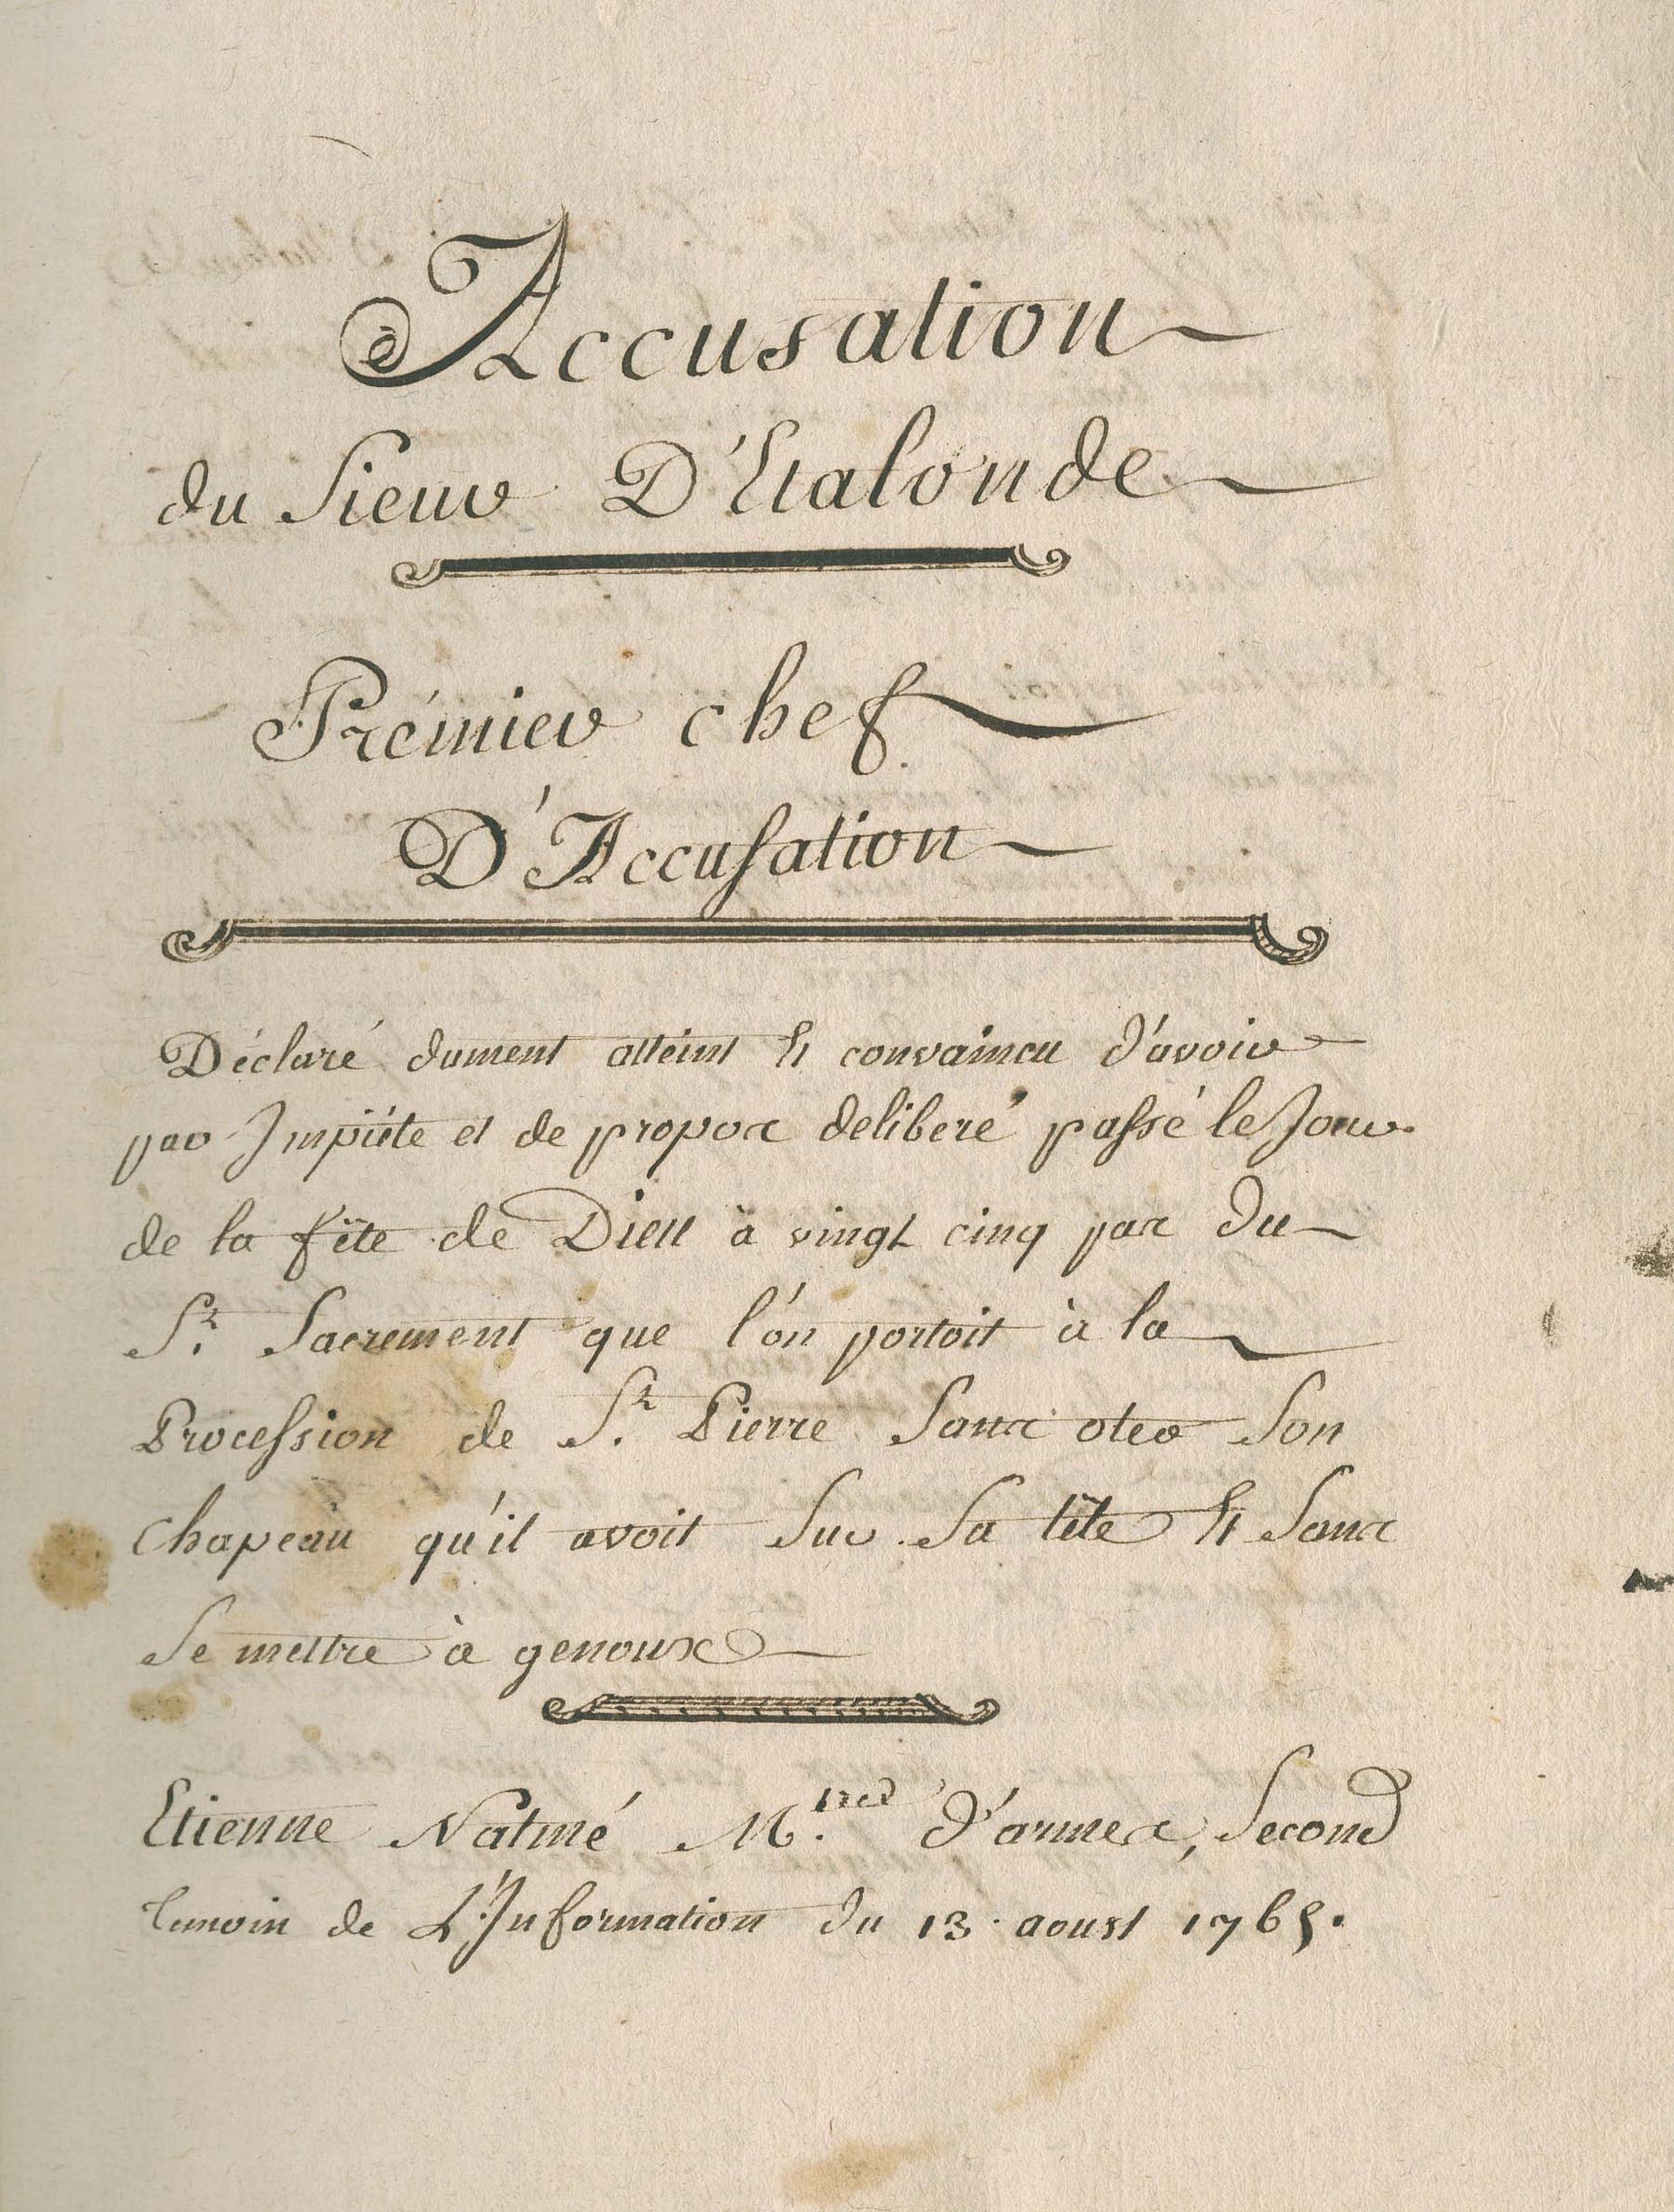 Accusation
du Sieur D'Etalonde
Prémier chef
D'Accusation
Déclaré dument atteint Et convaincu d'avoir
par Impiéte et de propos deliberé passé le Jour
de la fête de Dieu à vingt cinq pas du
St. Sacrement que l'ón portoit à la
Procession de St. Pierre Sans oter Son
Chapeau qu'il avoit Sur Sa tête Et Sans
Se mettre à genoux
Etienne Natmé M.tred d'armes, Second
temoin de L'Information du 13 aoust 1765.